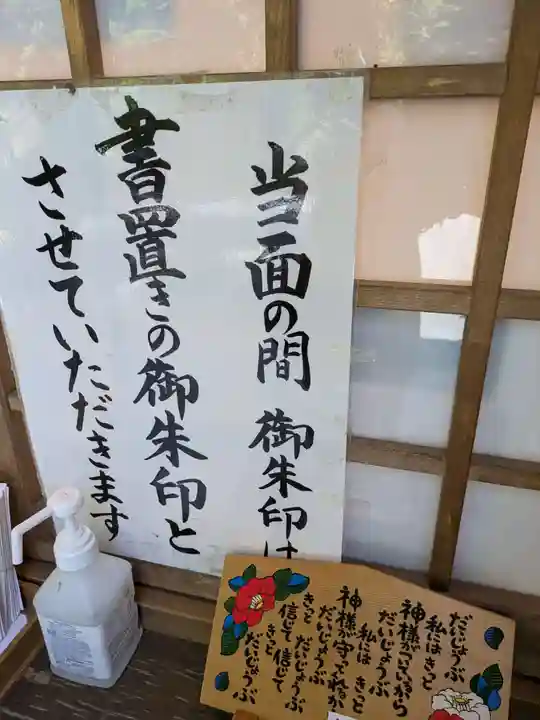 当面の間 御朱印は
書置きの御朱印と
させていただきます
だいじょうぶ
私には きっと
神様がついてるから
だいじょうぶ
私には きっと
神様が守ってくれるから
きっと だいじょうぶ
信じて 信じて
きっと だいじょうぶ